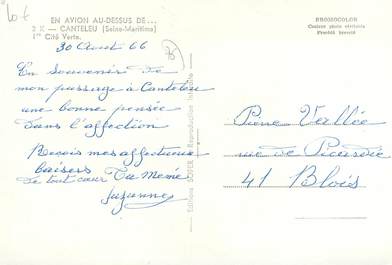 EN AVION AU-DESSUS DE...
2 K - CANTELEU (Seine-Maritime)
1re Cité Verte.
30 Aout 66
En Souvenir de
mon passage à Canteleu
une bonne pensée
dans l'affection
Reçois mes affectueux
baisers
de tout cœur Ta Mémé
Suzanne
PROMOCOLOR
Couleur photo véritable
Procédé breveté
Pierre Vallée
rue de Picardie
41 Blois